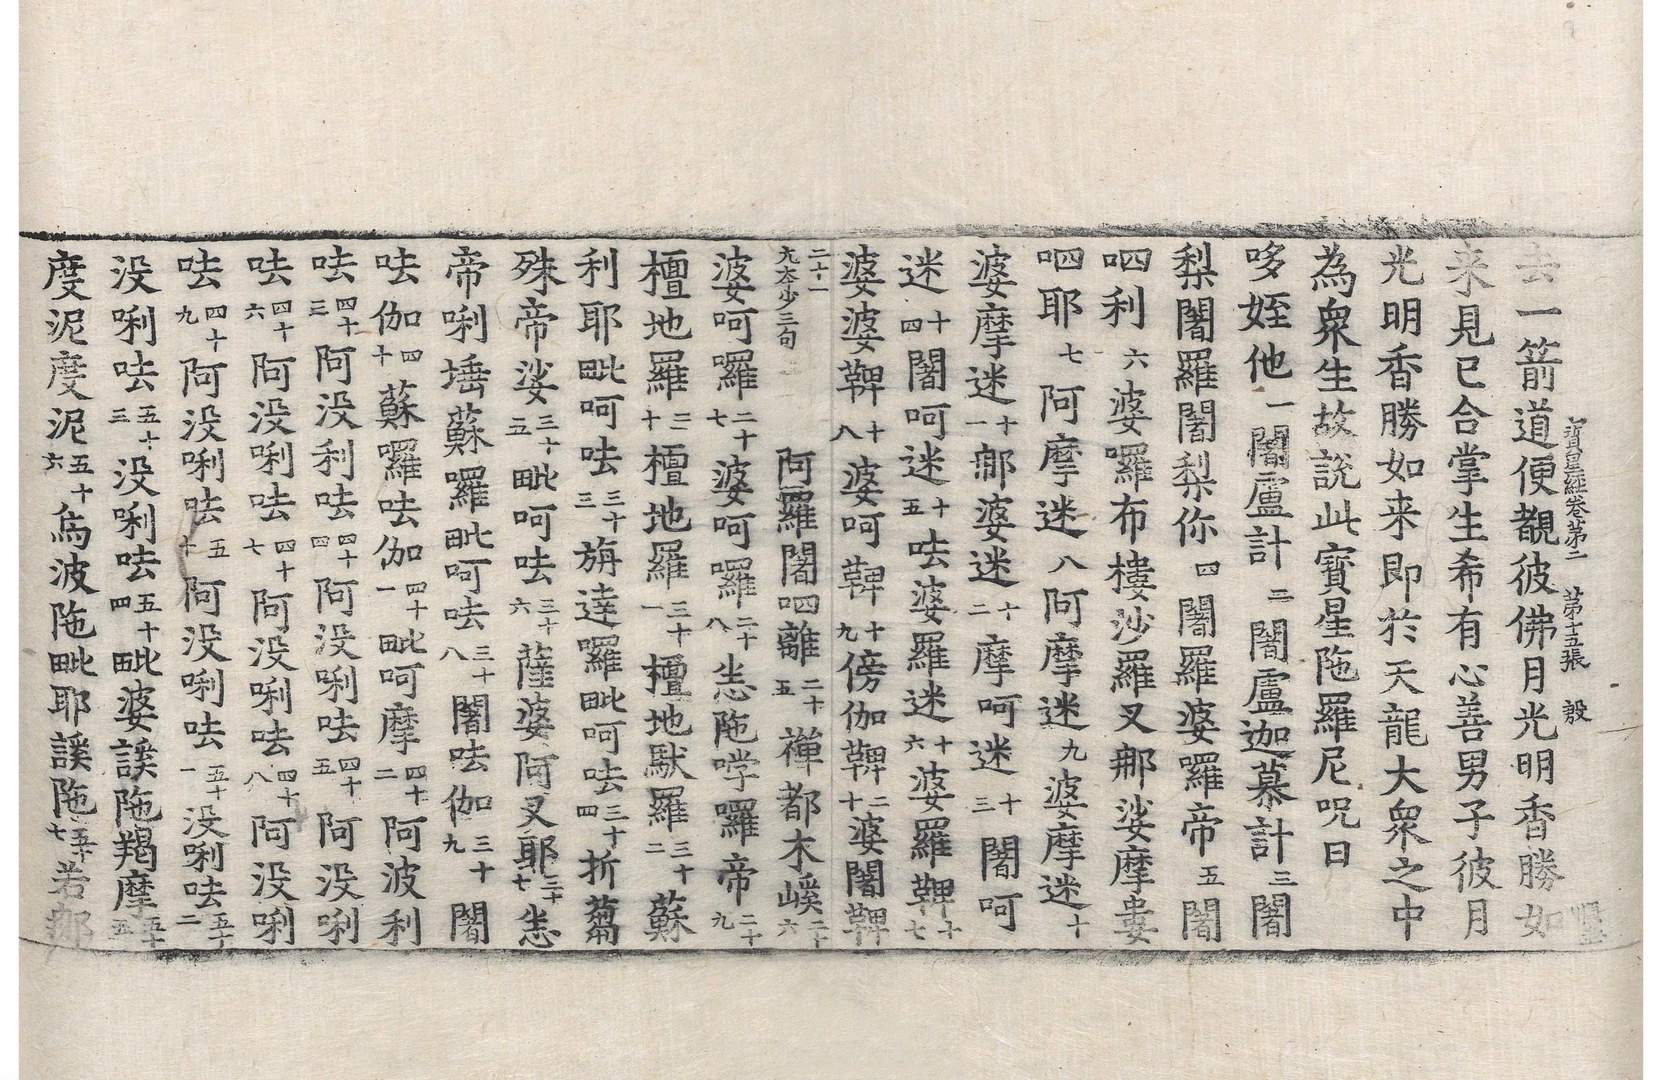 寶星經卷第二　第十五張　殷
去一箭道便覩彼佛月光明香勝如
来見已合掌生希有心善男子彼月
光明香勝如来即於天龍大衆之中
為衆生故說此寶星陁羅尼咒曰
哆姪他一闍盧計二闍盧迦慕計三闍
梨闍羅闍梨你四闍羅婆囉帝五闍
呬利六婆囉布樓沙羅叉那娑摩婁
呬耶七阿摩迷八阿摩迷九婆摩迷十
婆摩迷十一那婆迷十二摩呵迷十三闍呵
迷十四闍呵迷十五呿婆羅迷十六婆羅鞞十七
婆婆鞞十八婆呵鞞十九傍伽鞞二十婆闍鞞
二十一九本少三句阿羅闍呬離二十五禪都木嵠二十六
婆呵囉二十七婆呵囉二十八恙陁囉帝二十九
檀地羅三十檀地羅三十一檀地馱羅三十二蘇
利耶毗呵呿三十三旃達囉毗呵呿三十四折蒭
殊帝娑三十五毗呵呿三十六薩婆阿叉耶三十七恙
帝唎埵蘇囉毗呵呿三十八闍呿伽三十九闍
呿伽四十蘇囉呿伽四十一毗呵摩四十二阿波利
呿四十三阿没利呿四十四阿没唎呿四十五阿没唎
呿四十六阿没唎呿四十七阿没唎呿四十八阿没唎
呿四十九阿没唎呿五十阿没唎呿五十一没唎呿五十二
没唎呿五十三没唎呿五十四毗婆謨陁羯摩五十五
度泥度泥五十六烏波陁毗耶謨陁五十七若那